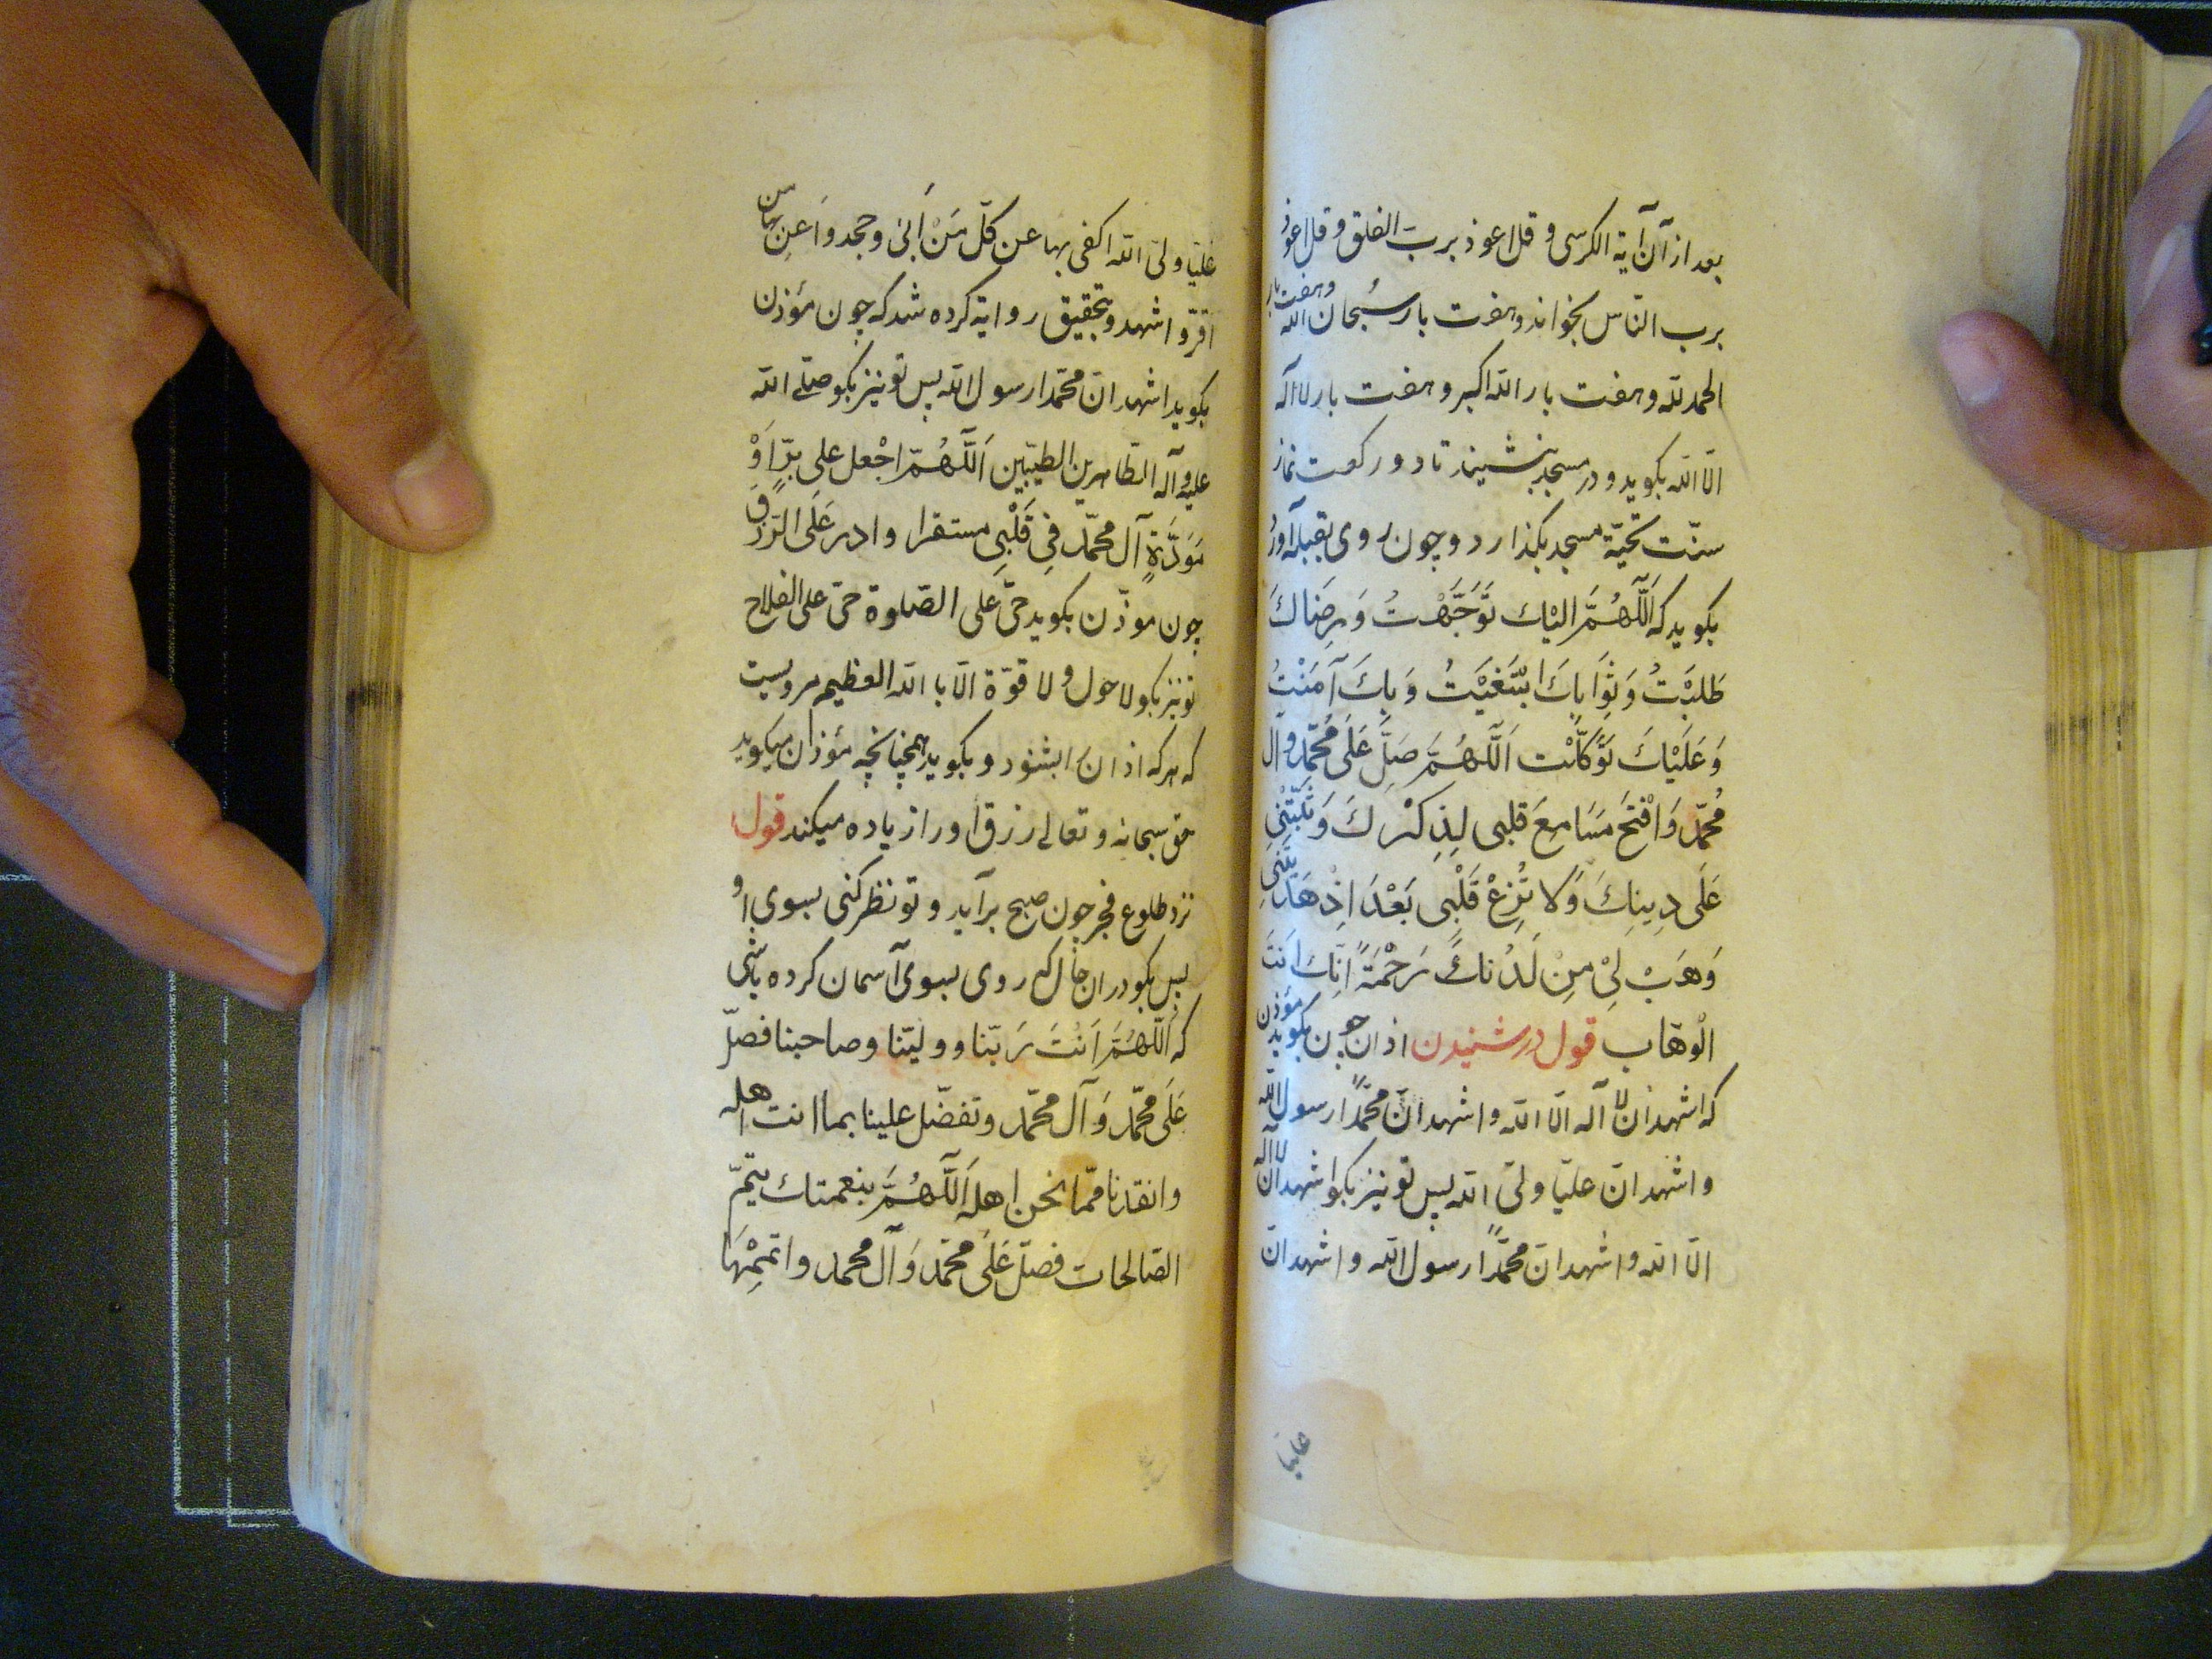 بعد از آن آیة الکرسی و قل اعوذ برب الفلق و قل اعوذ
برب النّاس بخواند و هفت بار سُبحان الله و هفت بار
الحمد لله و هفت بار الله اکبر و هفت بار لا اله
الّا الله بکوید و در مسجد بنشیند تا دو رکعت نماز
سنّت تحیّة مسجد بکذارد و چون روی بقبله آورد
بکوید که اَللّهُمَّ الیْك تَوَجَّهْتُ وَ مِرضَاكَ
طَلَبْتُ وَ ثِوَابِكَ ابْتَغَیْتُ وَ بِكَ آمَنْتُ
وَ عَلَیْكَ تَوَکَّلْت اَللّهُمَّ صَلِّ عَلَی مُحَمّد وآل
مُحمّد وَ افْتَحْ مَسَامِعَ قلبی لِذِکْرِكَ وَ ثَبِّتْنِی
عَلَی دِینِكَ وَ لا تُزِغْ قَلْبِی بَعْدَ اِذْ هَدَیْتَنِی
وَ هَبْ لِیْ مِنْ لَدُنْكَ رَحْمَةً اِنّك اَنتَ
الْوهّاب قول در شنیدن اذان چون مؤذن بکوید
که اشهد ان لا اله الّا الله و اشهد انّ محمّداً رسول الله
و اشهد انّ علیّا ولیّ الله پس تو نیز بکو اشهد ان لا اله
الّا الله و اشهد انّ محمّداً رسول الله و اشهد انّ
علیّا
علیّا ولیّ الله اکفی بها عن کلّ مَنْ اَبیٰ و جحد وَ اَعِنْ بها من
اقرّ و اشهد و بتحقیق روایة کرده شد که چون مؤذن
بکوید اشهد انّ محمّدا رسول الله پس تو نیز بکو صلّی الله
علیه و آله الطّاهرین الطیّبین اَللّهُمّ اجْعل علی بِرّاً وَ
مَوَدَّةٍ آل محمّد فِی قَلْبِی مستقرا و ادر عَلَی الرّزق
چون موذّن بکوید حیّ عَلی الصّلوة حیّ علی الفلاح
تو نیز بکو لا حول و لا قوّة الّا با الله العظیم مرویست
که هر که اذان بشنود و بکوید همچنانچه مؤذان میکوید
حق سبحانه و تعالی رزق او را زیاده میکند قول
نزد طلوع فجر چون صبح برآید و تو نظر کنی بسوی او
پس بکو در ان حال که روی بسوی آسمان کرده باشی
که اَللّهُمَّ اَنْتَ رَبّنا و ولیّنا و صاحبنا فصلّ
عَلَی محمّد وَ آل محمّد و تفضّل علینا بما انت اهله
و انقذنا ممّا نحن اهله اَللّهُمَّ بنعمتك یتمّ
الصّالحات فصلّ عَلَی محمّد وَ آل محمد و اتمِمْهَا